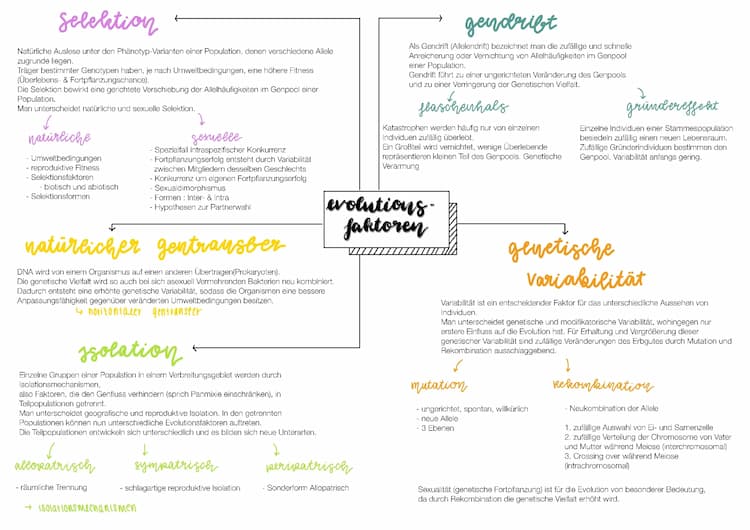 selektion
Natürliche Auslese unter den Phänotyp-Varianten einer Population, denen verschiedene Allele
zugrunde liegen.
Träger bestimmter Genotypen haben, je nach Umweltbedingungen, eine höhere Fitness
(Überlebens- & Fortpflanzungschance).
Die Selektion bewirkt eine gerichtete Verschiebung der Allelhäufigkeiten im Genpool einer
Population.
Man unterscheidet natürliche und sexuelle Selektion.
natürliche
- Umweltbedingungen
- reproduktive Fitness
- Selektionsfaktoren
- biotisch und abiotisch
- Selektionsformen
sexuelle
- Spezielfall intraspezifischer Konkurrenz
- Fortpflanzungserfolg entsteht durch Variabilität
zwischen Mitgliedern desselben Geschlechts
- Konkurrenz um eigenen Fortpflanzungserfolg
- Sexualdimorphismus
- Formen : Inter- & Intra
- Hypothesen zur Partnerwahl
gendrift
Als Gendrift (Allelendrift) bezeichnet man die zufällige und schnelle
Anreicherung oder Vernichtung von Allelhäufigkeiten im Genpool
einer Population.
Gendrift führt zu einer ungerichteten Veränderung des Genpools
und zu einer Verringerung der Genetischen Vielfalt.
flaschenhals
Katastrophen werden häufig nur von einzelnen
Individuen zufällig überlebt.
Ein Großteil wird vernichtet, wenige Überlebende
repräsentieren kleinen Teil des Genpools. Genetische
Verarmung
gründereffekt
Einzelne Individuen einer Stammespopulation
besiedeln zufällig einen neuen Lebensraum.
Zufällige Gründerindividuen bestimmen den
Genpool. Variabilität anfangs gering.
evolutions-
faktoren
natürlicher gentransfer
DNA wird von einem Organismus auf einen anderen Übertragen(Prokaryoten).
Die genetische Vielfalt wird so auch bei sich asexuell Vermehrenden Bakterien neu kombiniert.
Dadurch entsteht eine erhöhte genetische Variabilität, sodass die Organismen eine bessere
Anpassungsfähigkeit gegenüber veränderten Umweltbedingungen besitzen.
↳ horizontaler gentransfer
genetische
variabilität
Variabilität ist ein entscheidender Faktor für das unterschiedliche Aussehen von
Individuen.
Man unterscheidet genetische und modifikatorische Variabilität, wohingegen nur
erstere Einfluss auf die Evolution hat. Für Erhaltung und Vergrößerung dieser
genetischer Variabilität sind zufällige Veränderungen des Erbgutes durch Mutation und
Rekombination ausschlaggebend.
mutation
- ungerichtet, spontan, willkürlich
- neue Allele
- 3 Ebenen
rekombination
- Neukombination der Allele
1. zufällige Auswahl von Ei- und Samenzelle
2. zufällige Verteilung der Chromosome von Vater
und Mutter während Meiose (interchromosomal)
3. Crossing over während Meiose
(intrachromosomal)
Sexualität (genetische Fortpflanzung) ist für die Evolution von besonderer Bedeutung,
da durch Rekombination die genetische Vielfalt erhöht wird.
isolation
Einzelne Gruppen einer Population in einem Verbreitungsgebiet werden durch
Isolationsmechanismen,
also Faktoren, die den Genfluss verhindern (sprich Panmixie einschränken), in
Teilpopulationen getrennt.
Man unterscheidet geografische und reproduktive Isolation. In den getrennten
Populationen können nun unterschiedliche Evolutionsfaktoren auftreten.
Die Teilpopulationen entwickeln sich unterschiedlich und es bilden sich neue Unterarten.
allopatrisch
- räumliche Trennung
sympatrisch
- schlagartige reproduktive Isolation
peripatrisch
- Sonderform Allopatrisch
→ isolationsmechanismen